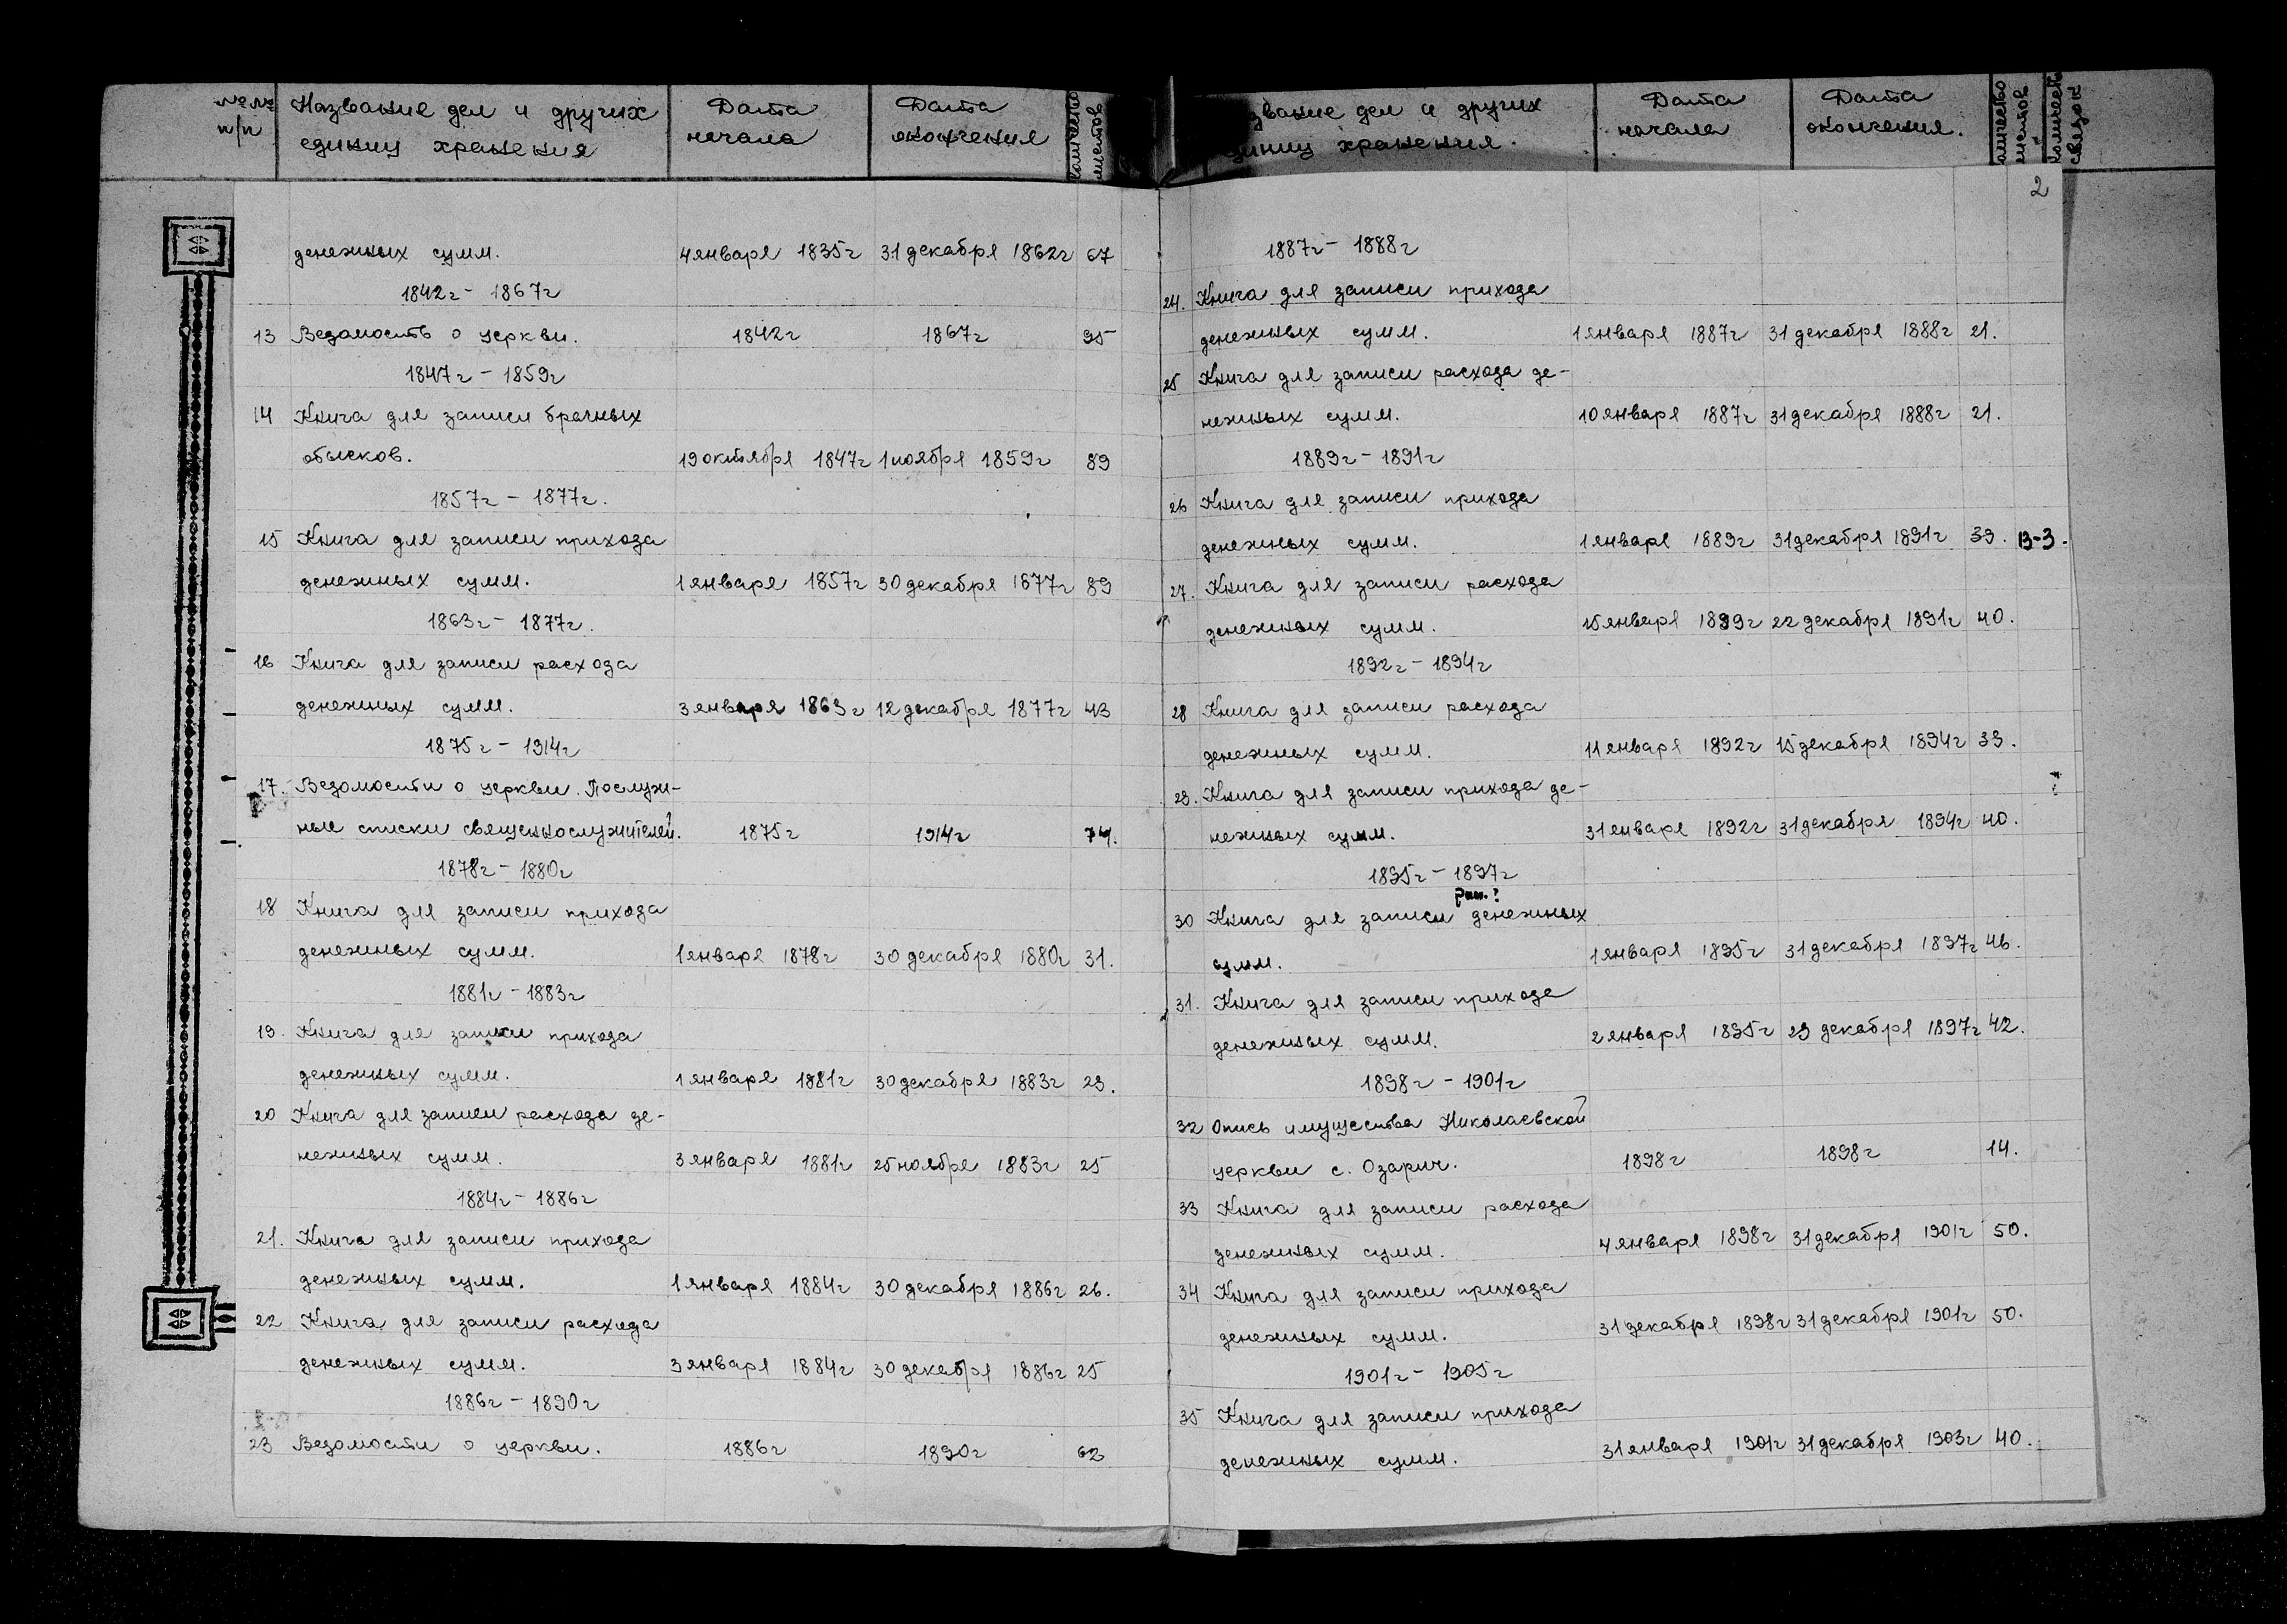 №№ Название дел и других Дата Дата
п/п единиц хранения начала окончения
количество листов
денежных сумм. 4 января 1835г 31 декабря 1862г 67
1842г - 1867г
13 Ведомость о церкви. 1842г 1867г 95
1847г - 1859г
14 Книга для записи брачных
обысков. 19 октября 1847г 1 ноября 1859г 89
1857г - 1877г.
15 Книга для записи прихода
денежных сумм. 1 января 1857г 30 декабря 1877г 89
1863г - 1877г.
16 Книга для записи расхода
денежных сумм. 3 января 1863г 12 декабря 1877г 43
1875г - 1914г
17. Ведомости о церкви. Послуж-
ные списки священнослужителей. 1875г 1914г 74.
1878г - 1880г
18 Книга для записи прихода
денежных сумм. 1 января 1878г 30 декабря 1880г 31.
1881г - 1883г
19. Книга для записи прихода
денежных сумм. 1 января 1881г 30 декабря 1883г 29.
20 Книга для записи расхода де-
нежных сумм. 3 января 1881г 25 ноября 1883г 25
1884г - 1886г
21. Книга для записи прихода
денежных сумм. 1 января 1884г 30 декабря 1886г 26.
22 Книга для записи расхода
денежных сумм. 3 января 1884г 30 декабря 1886г 25
1886г - 1890г
23 Ведомости о церкви. 1886г 1890г 62
звание дел и других Дата Дата
единиц хранения. начала окончения.
количество листов
количество связок
2
1887г - 1888г
24. Книга для записи прихода
денежных сумм. 1 января 1887г 31 декабря 1888г 21.
25 Книга для записи расхода де-
нежных сумм. 10 января 1887г 31 декабря 1888г 21.
1889г - 1891г
26 Книга для записи прихода
денежных сумм. 1 января 1889г 31 декабря 1891г 39. 13-3.
27. Книга для записи расхода
денежных сумм. 15 января 1889г 22 декабря 1891г 40.
1892г - 1894г
28 Книга для записи расхода
денежных сумм. 11 января 1892г 15 декабря 1894г 39.
29. Книга для записи прихода де-
нежных сумм. 31 января 1892г 31 декабря 1894г 40.
1895г - 1897г
30 Книга для записи денежных
сумм. 1 января 1895г 31 декабря 1897г 46.
31. Книга для записи прихода
денежных сумм. 2 января 1895г 29 декабря 1897г 42.
1898г - 1901г
32 Опись имущества Николаевской
церкви с. Озарич. 1898г 1898г 14.
33 Книга для записи расхода
денежных сумм. 4 января 1898г 31 декабря 1901г 50.
34 Книга для записи прихода
денежных сумм. 31 декабря 1898г 31 декабря 1901г 50.
1901г - 1905г
35 Книга для записи прихода
денежных сумм. 31 января 1901г 31 декабря 1903г 40.